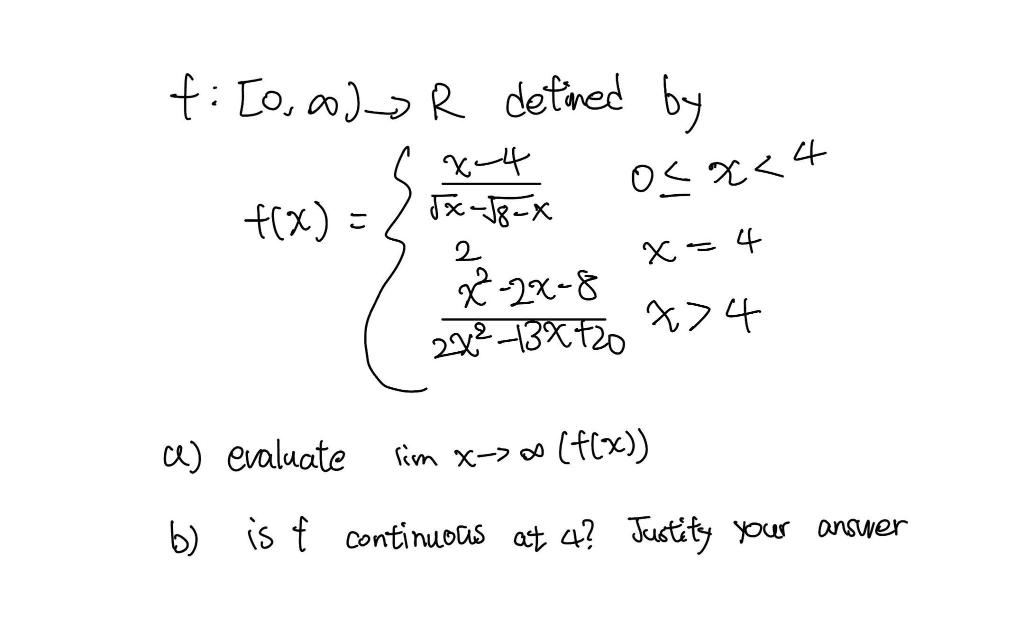 f: [0, ∞) → R defined by
f(x) = {
x-4 / √x - √8-x   0 ≤ x < 4
2   x = 4
x² - 2x - 8 / 2x² - 13x + 20   x > 4
a) evaluate lim x→∞ (f(x))
b) is f continuous at 4? Justify your answer